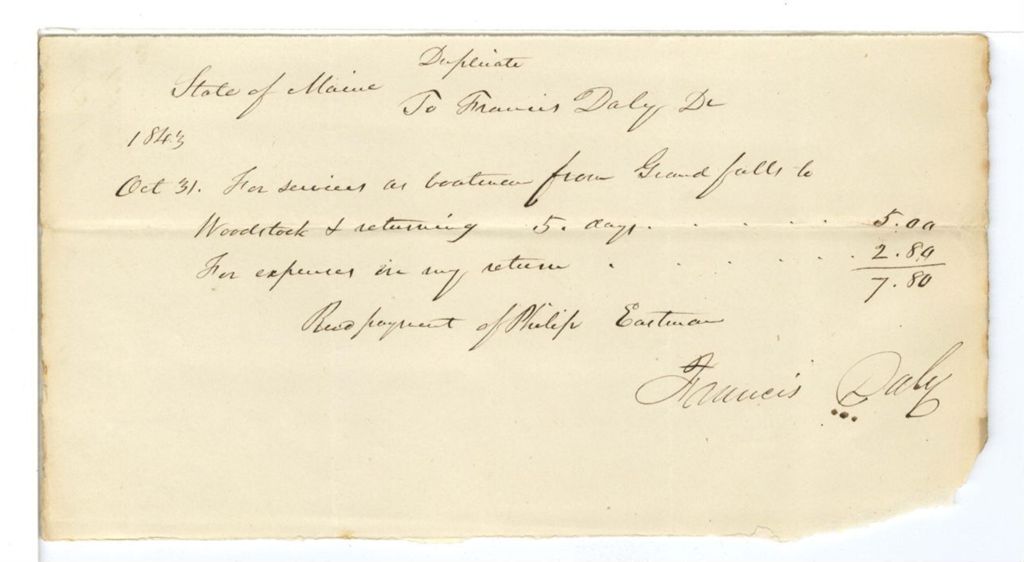 Duplicate
State of Maine
To Francis Daly Dr
1843
Oct 31. For services as boatman from Grand falls to
Woodstock & returning 5. days . . . . . 5.00
For expenses on my return . . . . . 2.80
7.80
Recd payment of Philip Eastman
Francis Daly